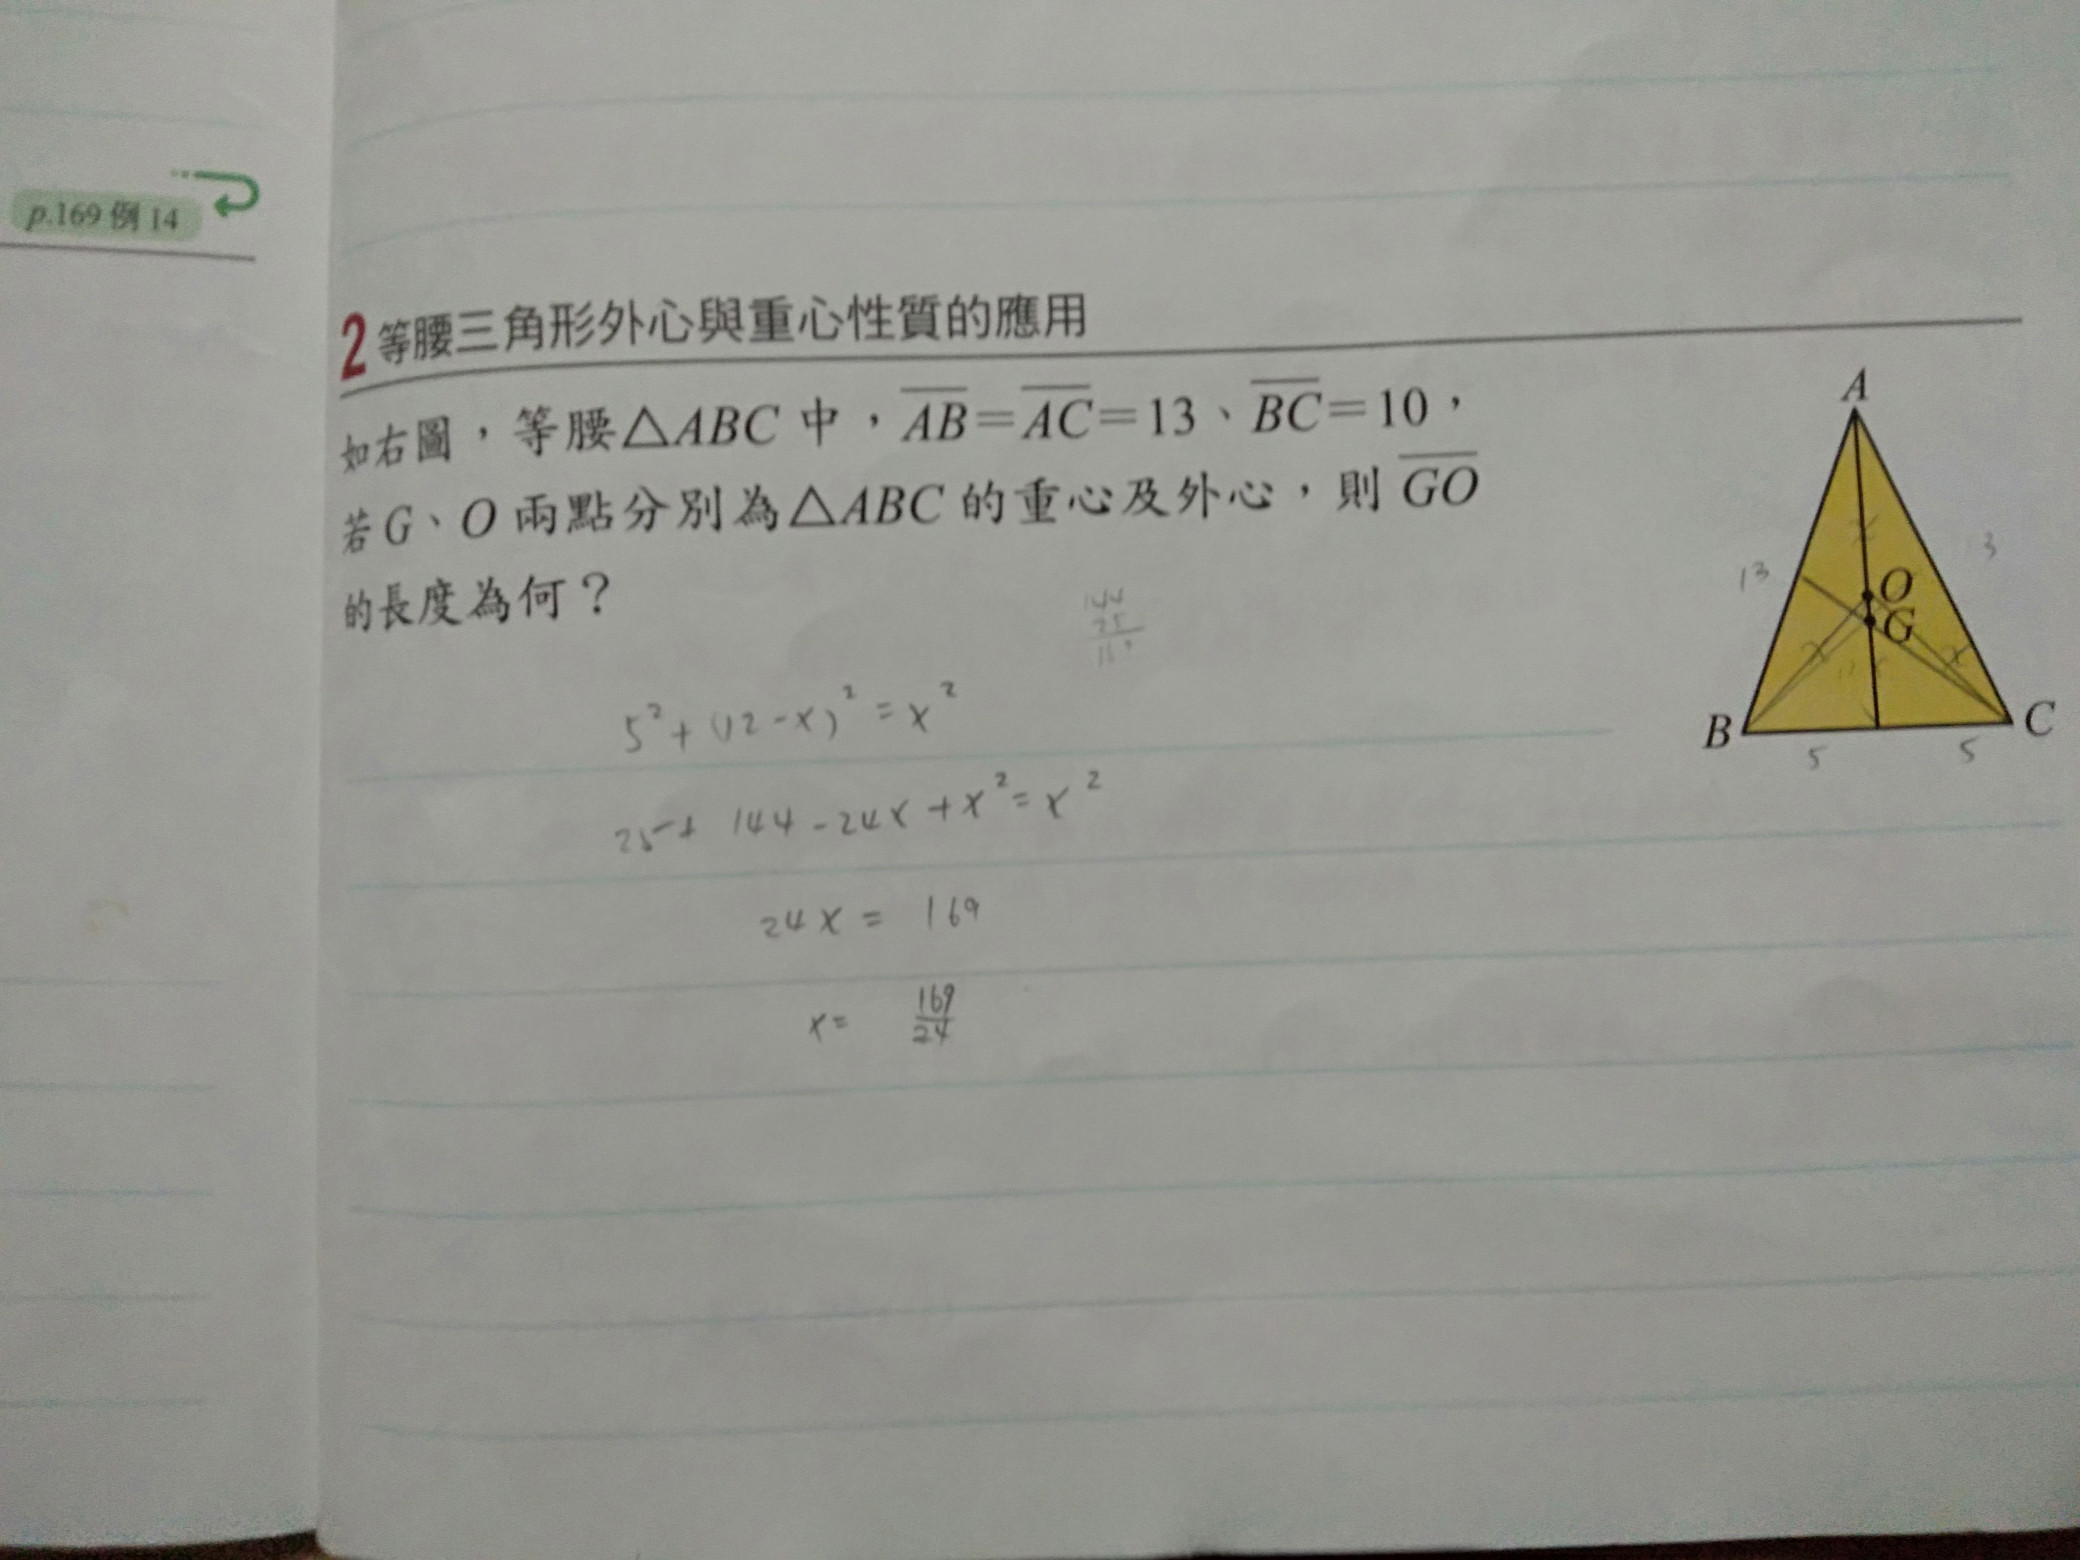 p.169 例 14
2 等腰三角形外心與重心性質的應用
如右圖，等腰△ABC 中，AB=AC=13、BC=10，
若 G、O 兩點分別為△ABC 的重心及外心，則 GO
的長度為何？
A
13
3
O
G
x
x
x
B
C
5
5
144
25
5²+(12-x)²=x²
25+144-24x+x²=x²
24x=169
x=169/24